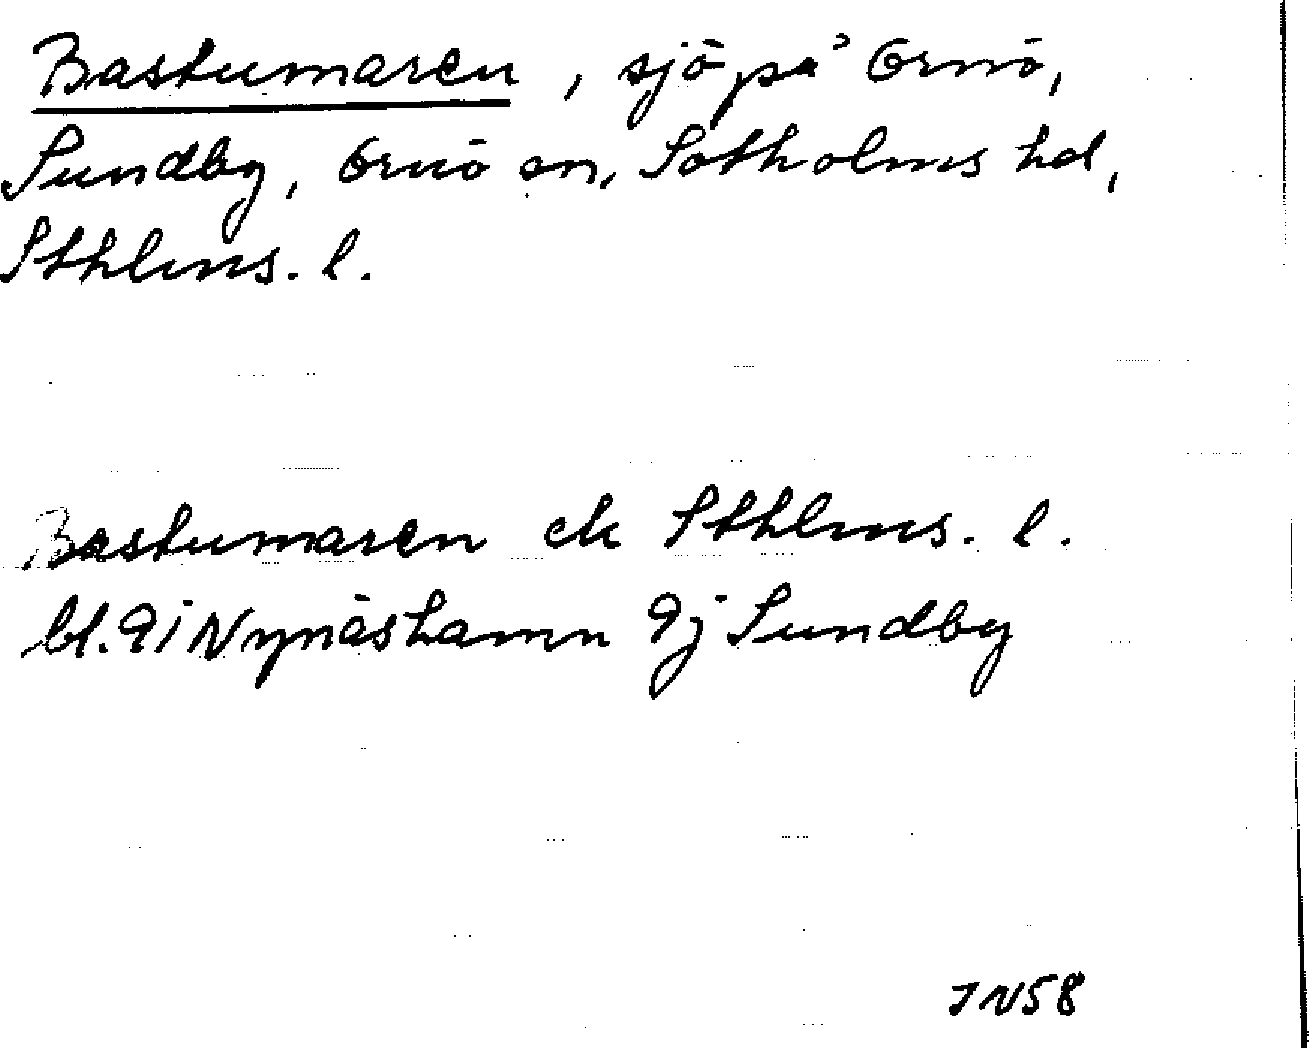 Bastumaren, sjö på Ornö,
Sundby, Ornö sn, Sotholms hd,
Sthlms. l.
Bastumaren ek Sthlms. l.
bl. 9i Nynäshamn 9j Sundby
JN58